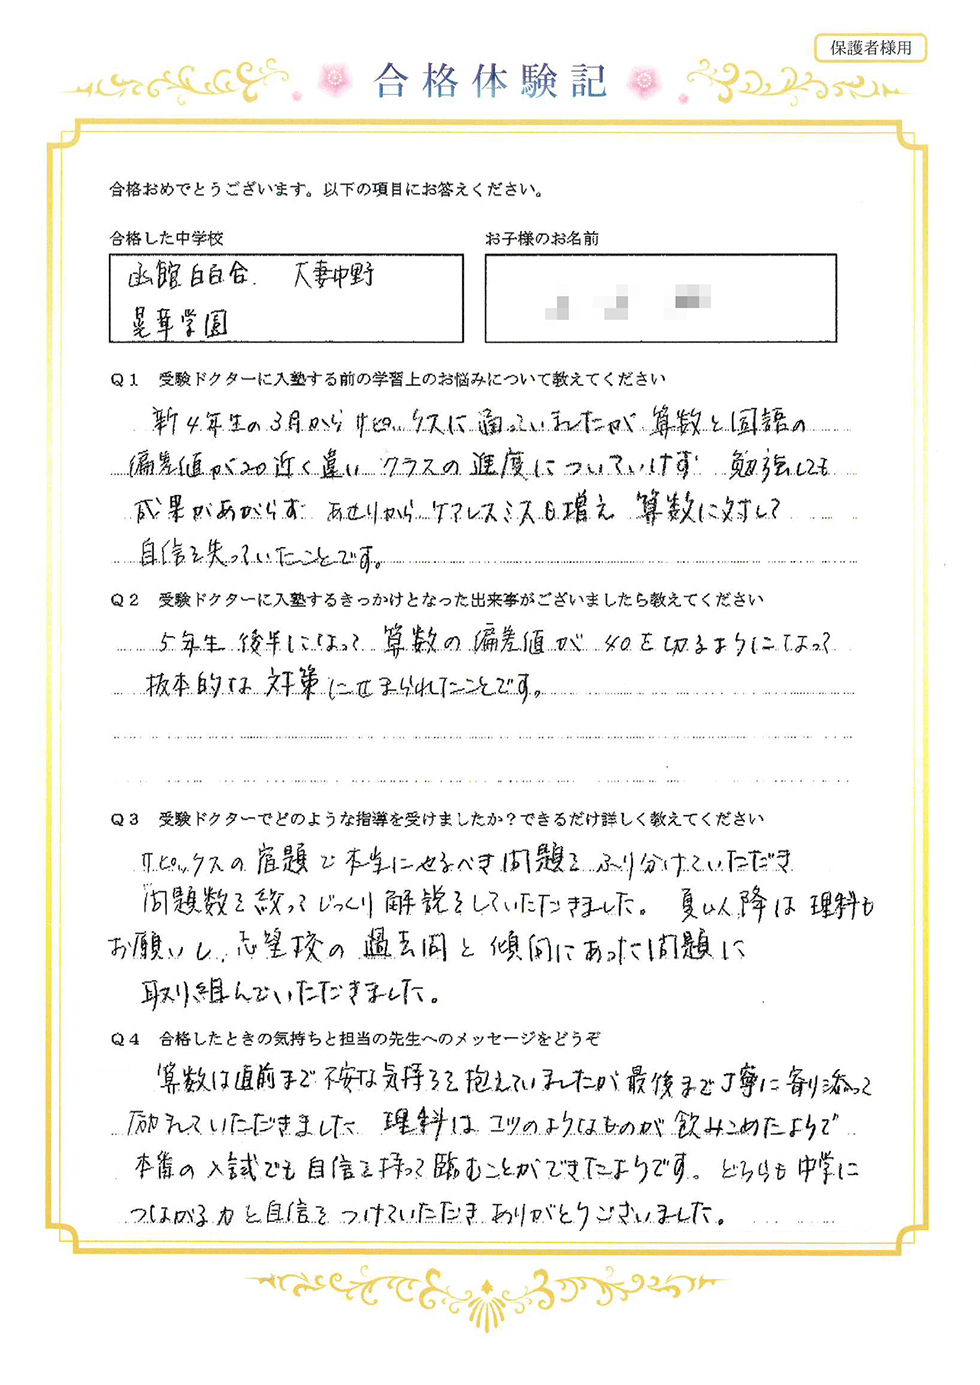 保護者様用
合格体験記
合格おめでとうございます。以下の項目にお答えください。
合格した中学校
お子様のお名前
函館白百合. 大妻中野
晃華学園
Q1 受験ドクターに入塾する前の学習上のお悩みについて教えてください
新4年生の3月からサピックスに通っていましたが 算数と国語の
偏差値が20近く違い クラスの進度についていけず 勉強しても
成果があがらず あせりから ケアレスミスも増え 算数に対して
自信を失っていたことです。
Q2 受験ドクターに入塾するきっかけとなった出来事がございましたら教えてください
5年生 後半になって 算数の偏差値が 40を切るようになって
抜本的な 対策にせまられたことです。
Q3 受験ドクターでどのような指導を受けましたか?できるだけ詳しく教えてください
サピックスの宿題で本当にやるべき問題をふり分けていただき
問題数を絞ってじっくり解説をしていただきました。 夏以降は理科も
お願いし、志望校の過去問と傾向にあった問題に
取り組んでいただきました。
Q4 合格したときの気持ちと担当の先生へのメッセージをどうぞ
算数は直前まで不安な気持ちを抱えていましたが最後まで丁寧に寄り添って
励ましていただきました 理科はコツのようなものが飲みこめたようで
本番の入試でも自信を持って臨むことができたようです。どちらも中学に
つながる力と自信をつけていただき ありがとうございました。